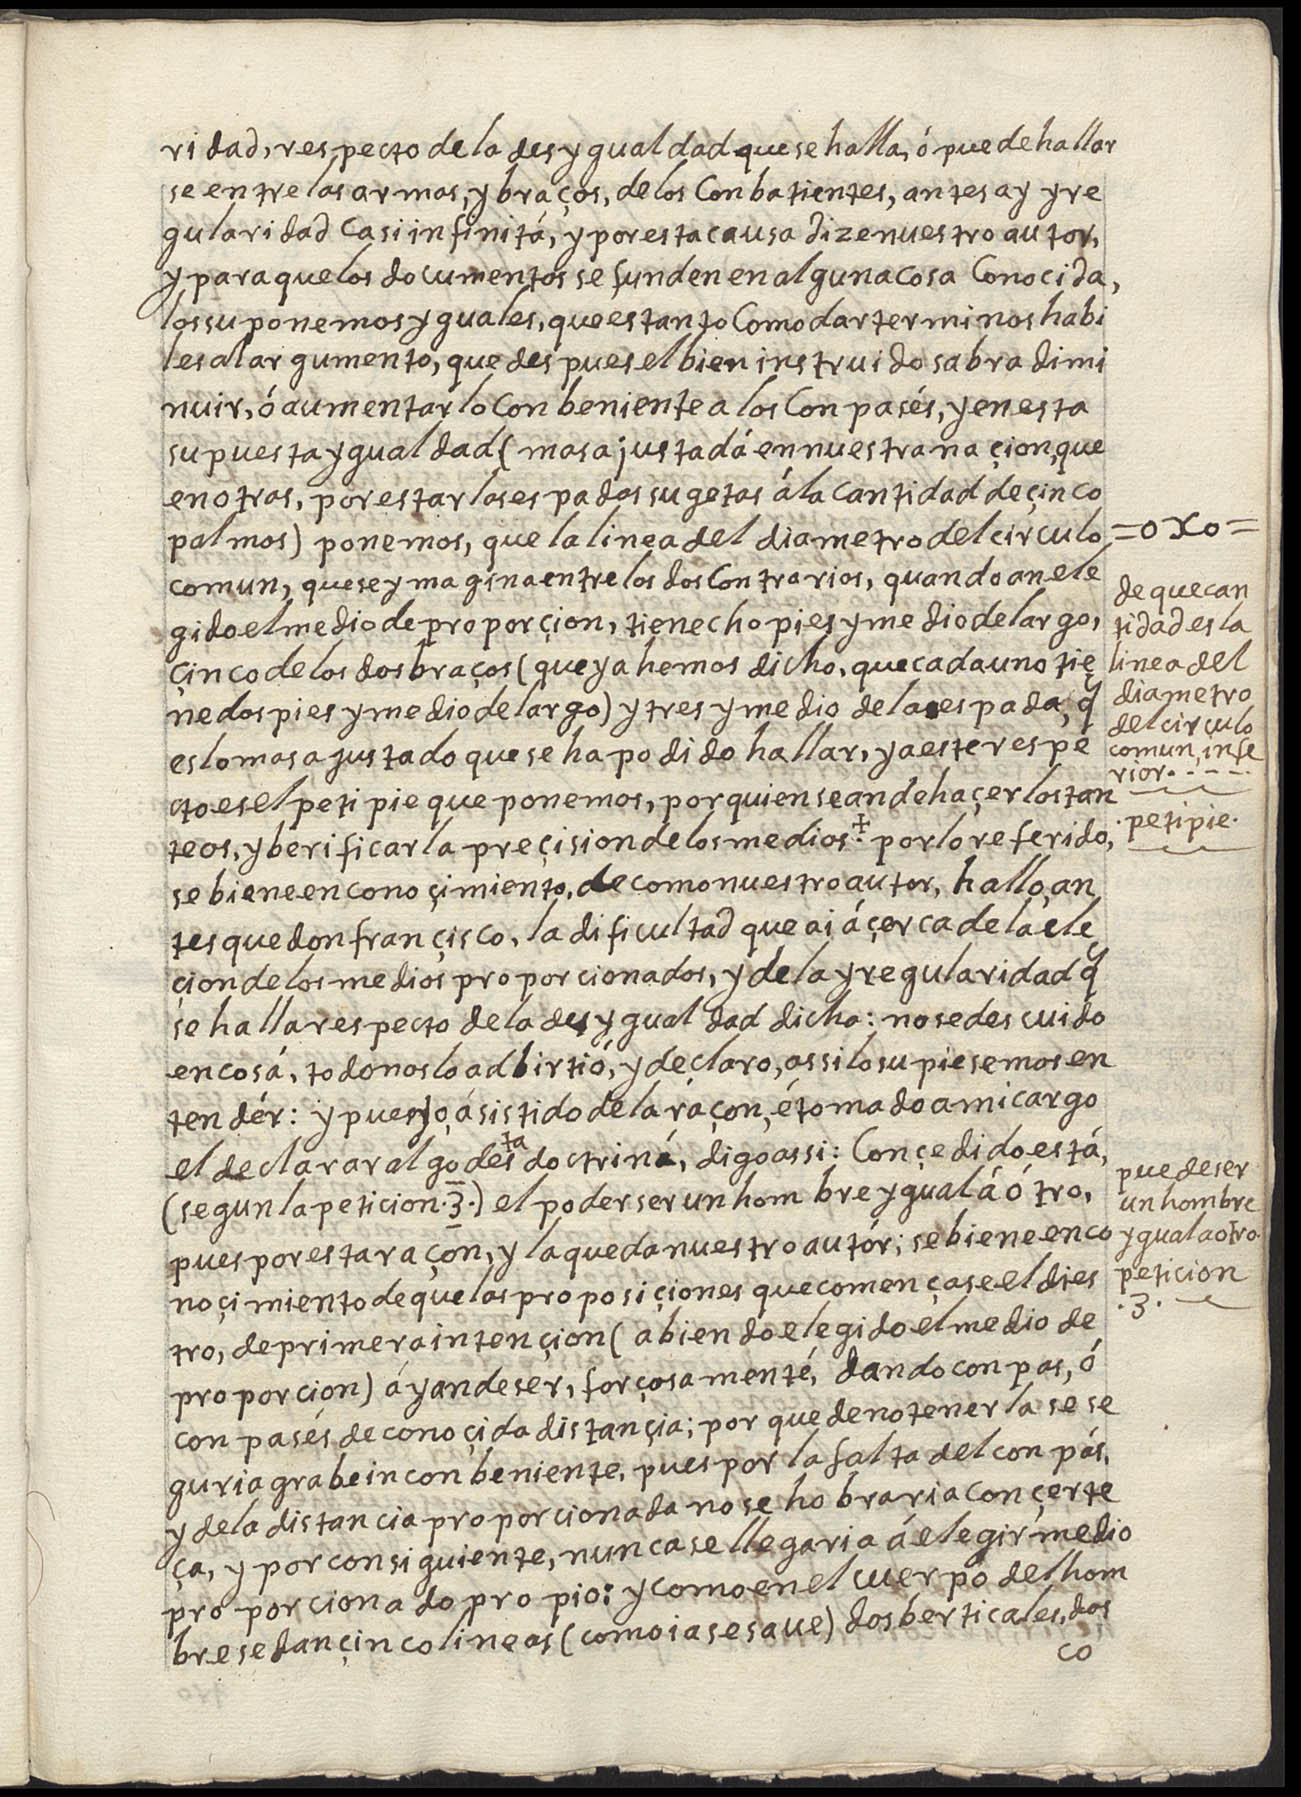 ridad, respecto de la desygualdad que se halla, ó puede hallar
se entre las armas, y braços, de los Conbatientes, antes ay yre
gularidad Casi infinitá, y por esta causa dize nuestro autor,
y para que los documentos se funden en alguna cosa Conocida,
los suponemos yguales, que es tanto Como dar terminos habi
les al argumento, que despues el bien instruido sabra dimi
nuir, ó aumentar lo Conbeniente a los Conpasés, y en esta
supuesta ygualdad ( mas ajustadá en nuestra naçion, que
en otras, por estar las espadas sugetas á la Cantidad de çinco
palmos) ponemos, que la linea del diametro del circulo
comun, que se ymagina entre los dos Contrarios, quando an ele
gido el medio de proporçion, tiene cho pies y medio de largo,
çinco de los dos braços ( que ya hemos dicho, que cada uno tie
ne dos pies y medio de largo) y tres y medio de la espada, q̃
es lo mas ajustado que se ha podido hallar, y a este respe
cto es el petipie que ponemos, por quien se an de haçer los tan
teos, y berificar la preçision de los medios. ‡ por lo referido,
se biene en conoçimiento, de como nuestro autor, hallo, an
tes que don françisco, la dificultad que ai áçerca de la ele
çion de los medios proporcionados, y de la yregularidad q̃
se halla respecto de la desygualdad dicha: no se descuido
en cosá, todo nos lo adbirtió, y declaro, assi lo supiesemos en
tendér: y pues yo, ásistido de la raçon, é tomado a mi cargo
el declarar algo desta doctriná, digo assi: Conçedido está,
(segun la peticion .3.) el poder ser un hombre ygual á ótro,
pues por esta raçon, y la que da nuestro autór; se biene en co
noçimiento de que las proposiçiones que començase el dies
tro, de primera intençion ( abiendo elegido el medio de
proporcion) áyan de ser, forçosamenté, dando conpas, ó
conpasés de conoçida distançia; por que de no tenerla se se
guria grabe inconbeniente, pues por la falta del conpás,
y de la distancia proporcionada no se hobraria con çerte
ça, y por consiguiente, nunca se llegaria á elegir medio
proporcionado propio: y como en el cuerpo del hom
bre se dan çinco lineas ( como ia se saue) dos berticales, dos
co
=oxo=
de que can
tidad es la
linea del
diametro
del circulo
comun, infe
rior. - - - -
.petipie.
puede ser
un hombre
ygual a otro.
peticion
.3.